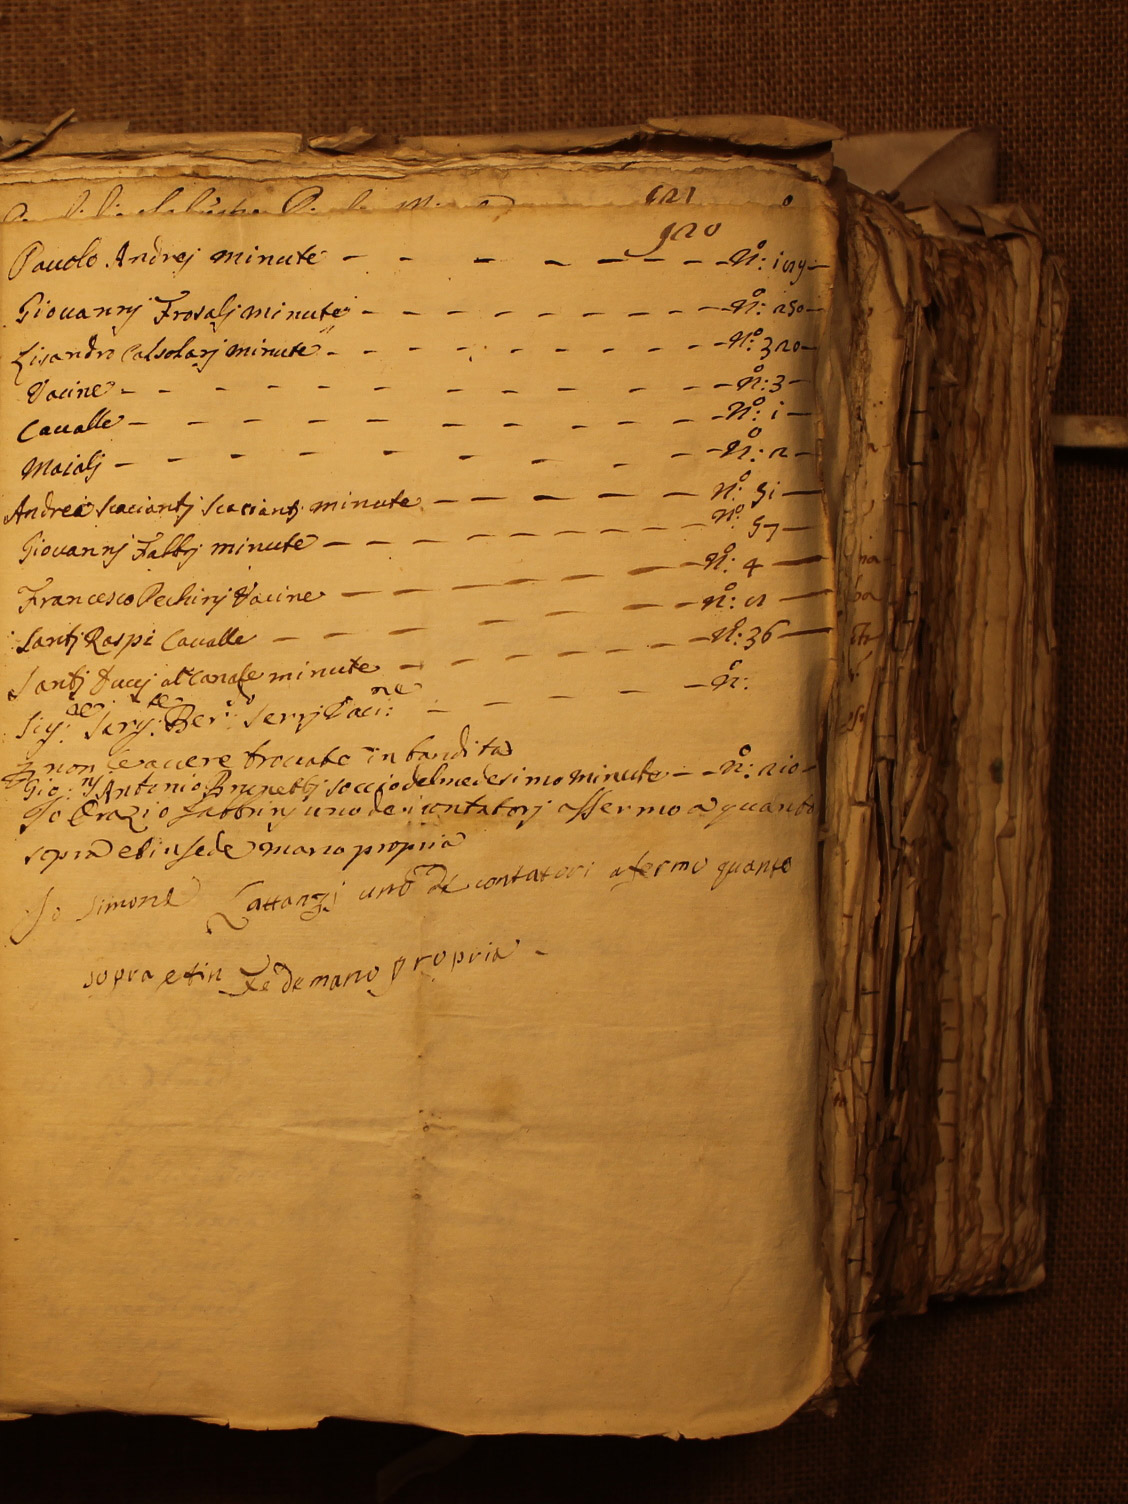 920
Pauolo Andrej minute n.o: 129
Giouannj Frosalj minute n.o: 250
Lisandro Calsolarj minute n.o 320
Vacine n.o: 3
Caualle n.o: i
Maialj n.o: 2
Andrea Scaciantj minute n.o 51
Giouannj Fabbrj minute n.o 57
Francesco Pechinj Vacine n.o: 4
Santj Raspi Caualle n.o:
Santj Vucj al Canale minute n.o: 36
Sig.re Ber.o Serrj Vaci:ne n.o:
non le auere trouate in bandita
Gio: Antonio Brunettj soccio del medesimo minute n.o: 210
Io Orazio Fabbrinj uno de i contatorj affermo a quanto
sopra et in fede mano propria
Io Simone Lattanzi uno de contatori afermo quanto
sopra et in Fede mano propria